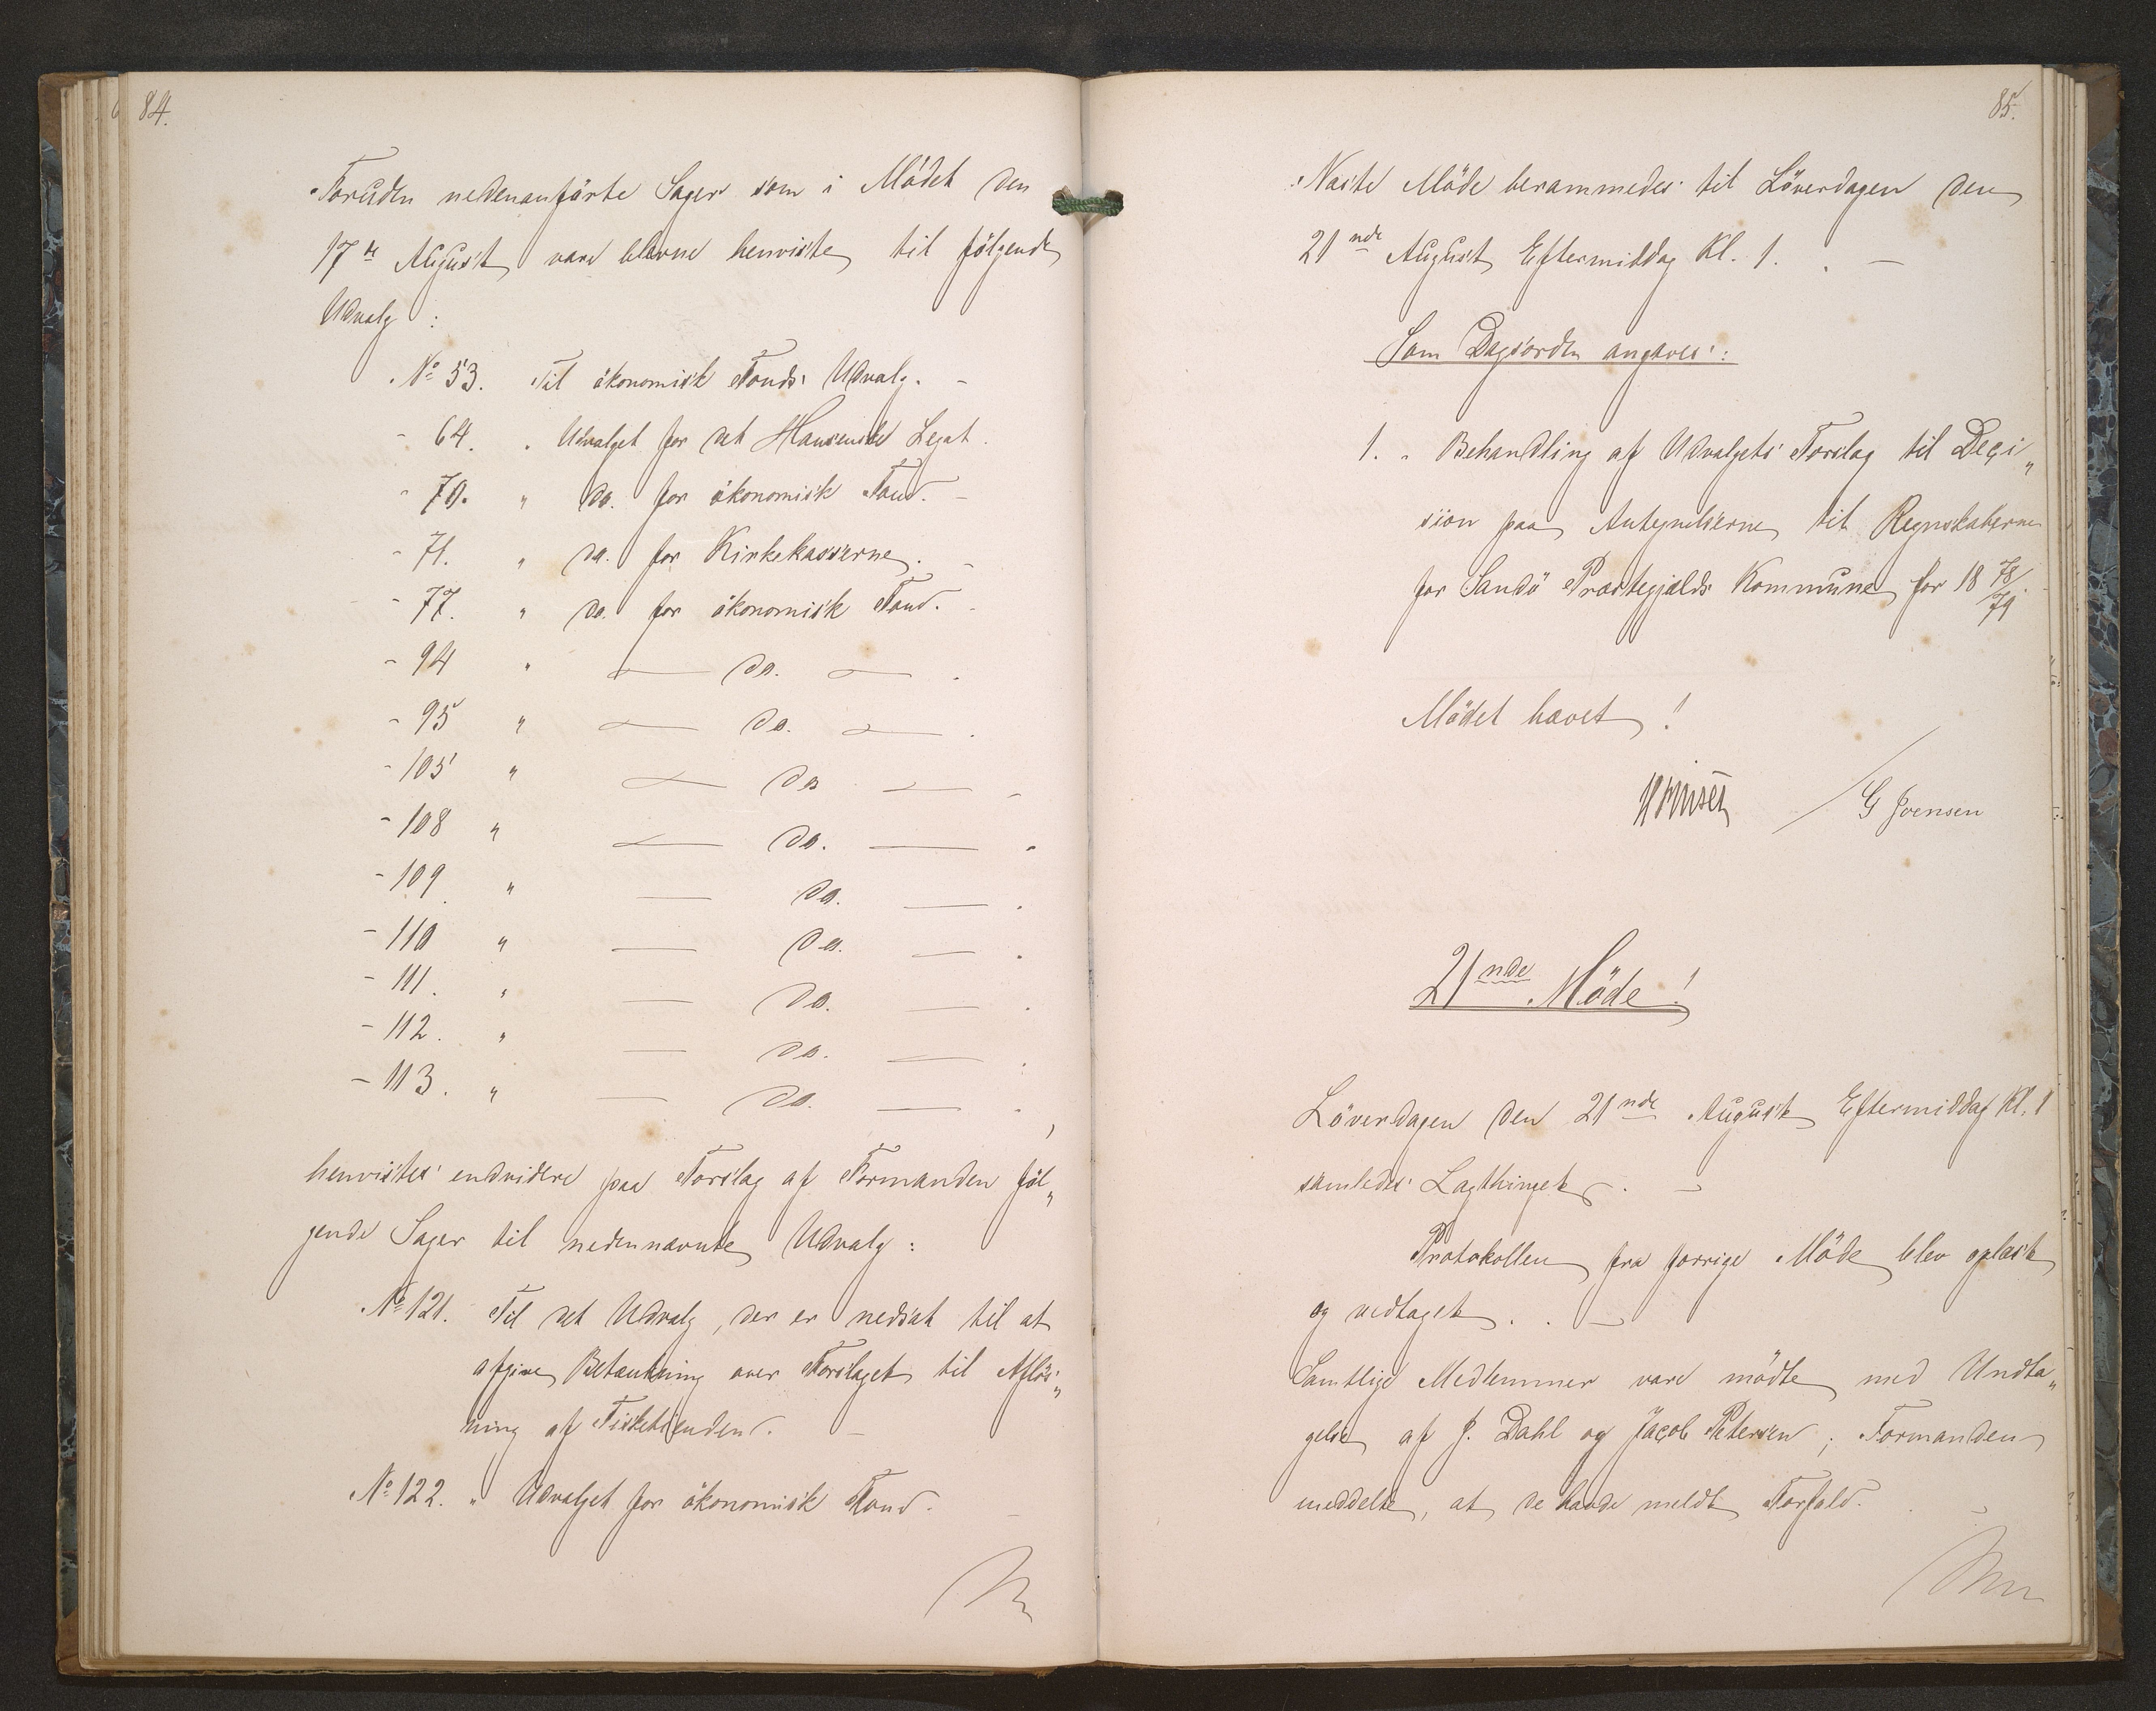 84.
Foruden nedenanførte Sager som i Mødet den
17de August vare blevne henviste til følgende
Udvalg :
No 53. Til økonomisk Fonds Udvalg. -
- 64. " Udvalget for det Hansenske Legat.
- 70. " do. for økonomisk Fond. -
- 71. " do. for Kirkekasserne. -
- 77. " do. for økonomisk Fond. -
- 94 " — do. — .
- 95 " — do. — .
- 105 " — do — -
- 108 " — do. — .
- 109. " — do. — .
- 110 " — do. — .
- 111. " — do. — .
- 112. " — do. — .
- 113. " — do. — . ,
henvistes endvidere paa Forslag af Formanden føl„
gende Sager til nedennævnte Udvalg :
No 121. Til det Udvalg, der er nedsat til at
afgive Betænkning over Forslaget til Afløs„
ning af Fisketienden. -
No 122. " Udvalget for økonomisk Fond. -
85.
Næste Møde berammedes til Løverdagen den
21nde August Eftermiddag Kl. 1. . —
Som Dagsorden angaves :
1. . Behandling af Udvalgets Forslag til Deci„
sion paa Antegnelserne til Regnskaberne
for Sandø Præstegjælds Kommune for 18 78/79
Mødet hævet !
/ G Joensen
21nde Møde !
Løverdagen den 21nde August Eftermiddag Kl. 1
samledes Lagthinget. —
Protokollen fra forrige Møde blev oplæst
og vedtaget. . —
Samtlige Medlemmer vare mødte med Undta„
gelse af J. Dahl og Jacob Petersen ; Formanden
meddelte, at de havde meldt Forfald.